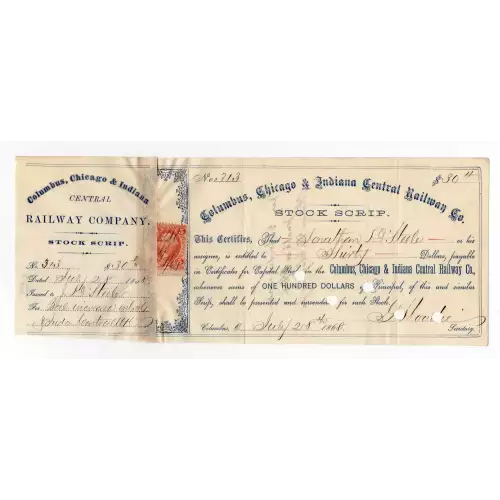 Columbus, Chicago & Indiana
CENTRAL
RAILWAY COMPANY.
STOCK SCRIP.
No. 313 $30
Dated July 28 1868
Issued to J. D. Steele
For
No. 313 $30
Columbus, Chicago & Indiana Central Railway Co.
STOCK SCRIP.
This Certifies, That Jonathan D. Steele or his
assigns, is entitled to Thirty Dollars, payable
in Certificates for Capital Stock of the Columbus, Chicago & Indiana Central Railway Co.,
whenever sums of ONE HUNDRED DOLLARS of Principal, of this and similar
Scrip, shall be presented and surrendered for such Stock.
Columbus, O. July 28th 1868.
Secretary.